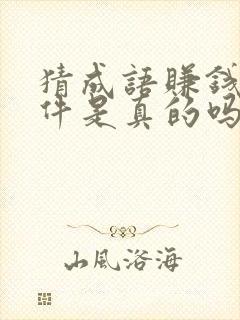 猜成語賺錢
件是真的吗
山風洛海